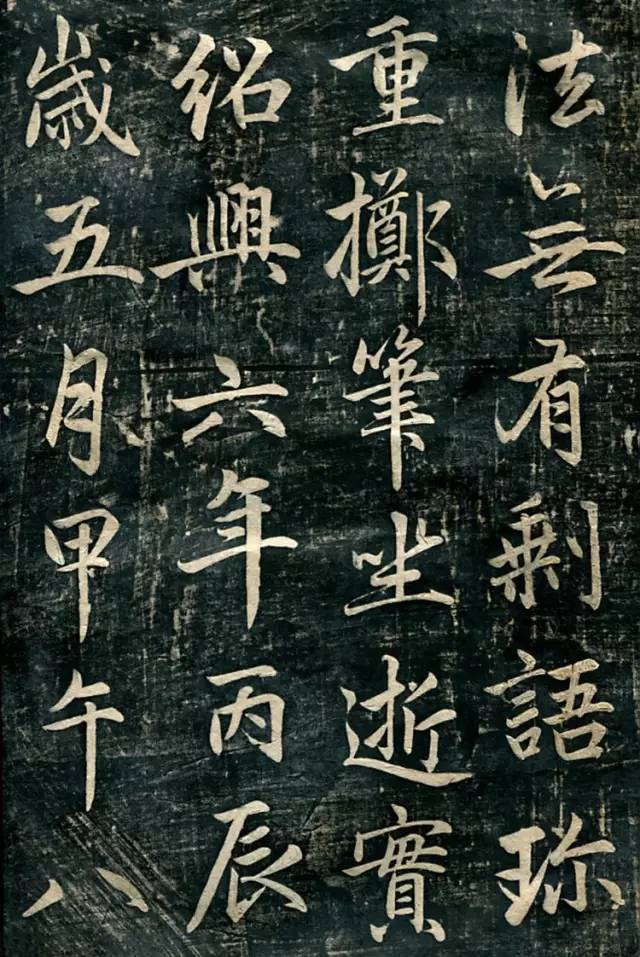 法無有剩語珎
重擲筆坐逝實
紹興六年丙辰
歲五月甲午八